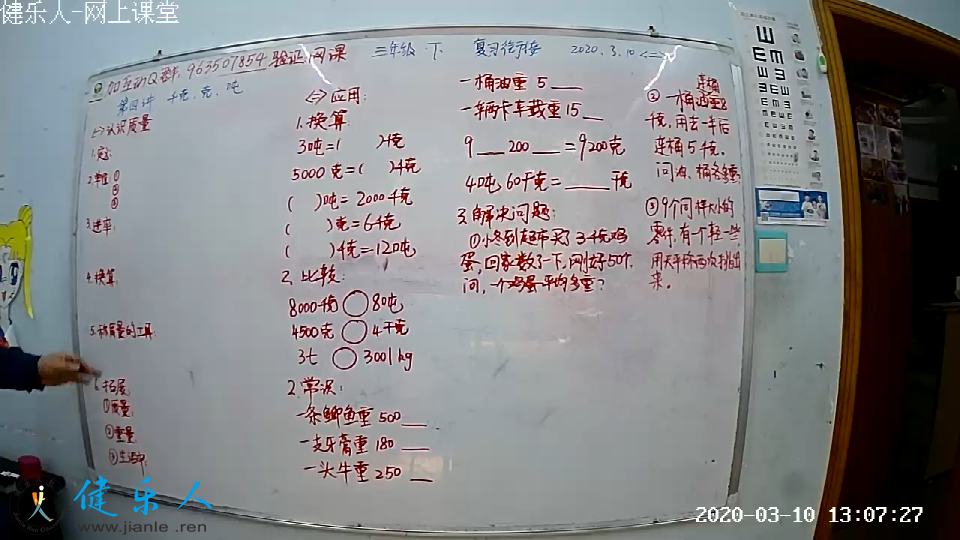 健乐人-网上课堂
加互动Q群:963507854验证:网课
三年级 下 复习衔接 2020.3.10
第四讲 千克、克、吨
认识质量
2.单位①
②
③
3.进率:
4.换算:
5.称质量的工具:
6.拓展
①质量:
②重量
③生活中:
应用:
1.换算
3吨=( )千克
5000克=( )千克
( )吨=2000千克
( )克=6千克
( )千克=120吨
2.比较:
8000千克○80吨
4500克○4千克
3t○3001kg
2.常识:
一条鲫鱼重500__
一支牙膏重180__
一头牛重250__
一桶油重 5___
一辆卡车载重15__
9___200___=9200克
40吨60千克=____千克
3.解决问题:
①小冬到超市买了3千克鸡
蛋,回家数了一下,刚好50个,
问,一个鸡蛋平均多重?
连桶
②一桶油重8
千克,用去一半后
连桶5千克,
问油、桶各多重
③9个同样大小的
零件,有一个轻一些
用天平称两次找出
来。
健乐人
www.jianle.ren
2020-03-10 13:07:27